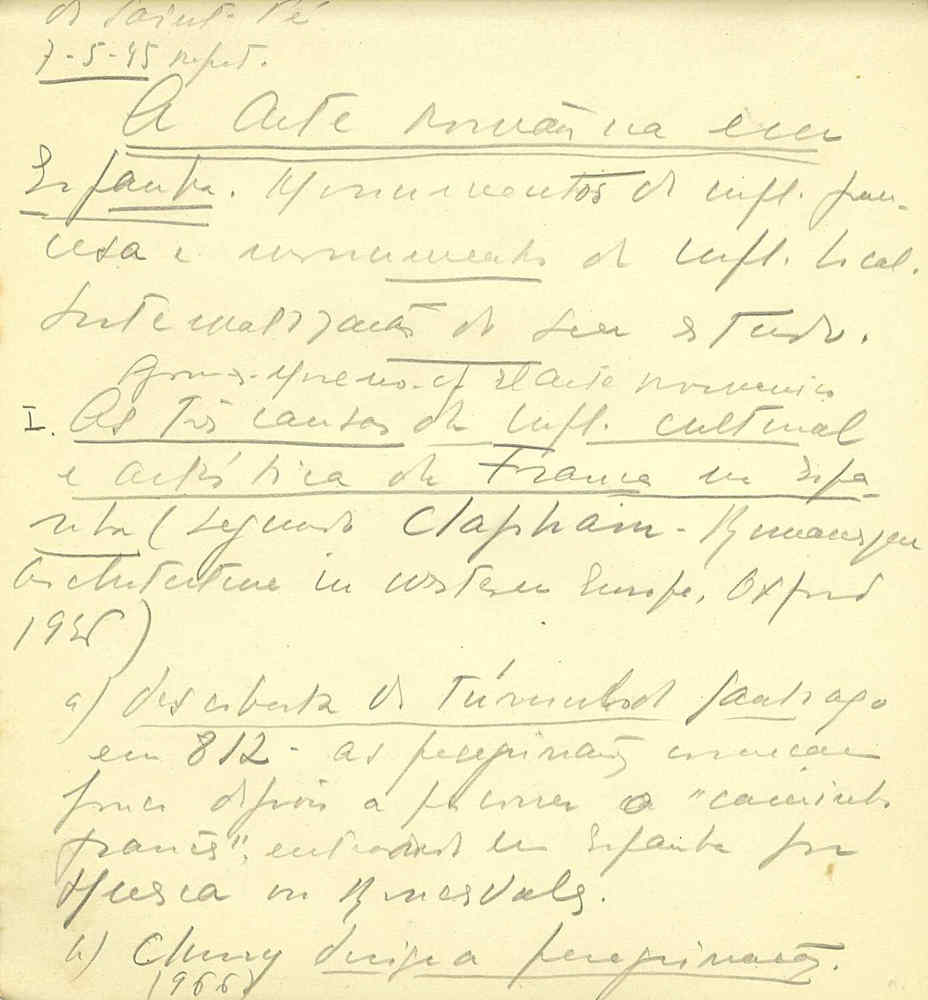 de Saint-Pé
7-5-45 repet.
A Arte românica em
Espanha. Monumentos de infl. fran-
cesa e monumentos de infl. local.
Sistematização do seu estudo.
Gomez-Moreno - El arte romanico
I. As três causas da infl. cultural
e artística da França na Espa-
nha (segundo Clapham - Romanesque
Architecture in western Europe, Oxford
1936)
a) descoberta do túmulo de Santiago
em 812 - as peregrinações começam
pouco depois a percorrer o "caminho
francês", entrando em Espanha por
Huesca ou Roncesvales.
b) Cluny dirige a peregrinação.
(966)